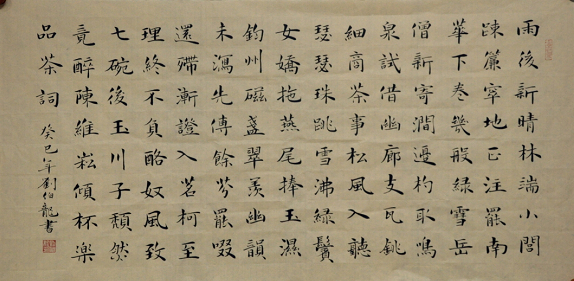 雨後新晴林端小閣
疎簾窣地正注罷南
華下卷幾般綠雪岳
僧新寄澗邊杓取鳴
泉試借幽廊支瓦銚
細商茶事松風入聽
瑟瑟珠跳雪沸綠鬢
女嬌拖燕尾捧玉濕
鈞州磁盞翠羨幽韻
未瀉先傳餘芬罷啜
還殢漸證入茗柯至
理終不負酪奴風致
七碗後玉川子頹然
竟醉陳維崧傾杯樂
品茶詞 癸巳年劉伯龍書